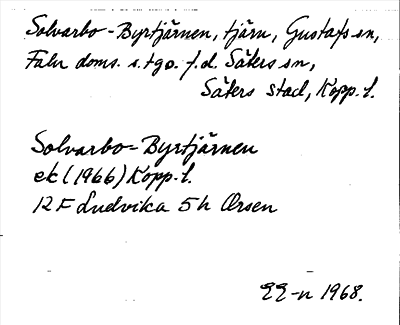 Solvarbo-Byrtjärnen, tjärn, Gustafs sn,
Falu doms. s. tgo. f.d. Säters sn,
Säters stad, Kopp. l.
Solvarbo-Byrtjärnen
ek (1966) Kopp. l.
12 F Ludvika 5 h Ørsen
EE-n 1968.